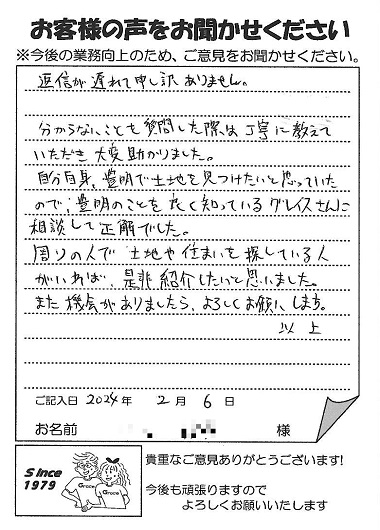 お客様の声をお聞かせください
※今後の業務向上のため、ご意見をお聞かせください。
返信が遅れて申し訳ありません。
分からないことも質問した際は丁寧に教えて
いただき大変助かりました。
自分自身、豊明で土地を見つけたいと思っていた
ので、豊明のことを良く知っているグレイスさんに
相談して正解でした。
周りの人で土地や住まいを探している人
がいれば、是非紹介したいと思いました。
また機会がありましたら、よろしくお願いします。
以上
ご記入日 2024年 2月 6日
お名前 様
Since
1979
Grace
Grace
貴重なご意見ありがとうございます!
今後も頑張りますので
よろしくお願いいたします